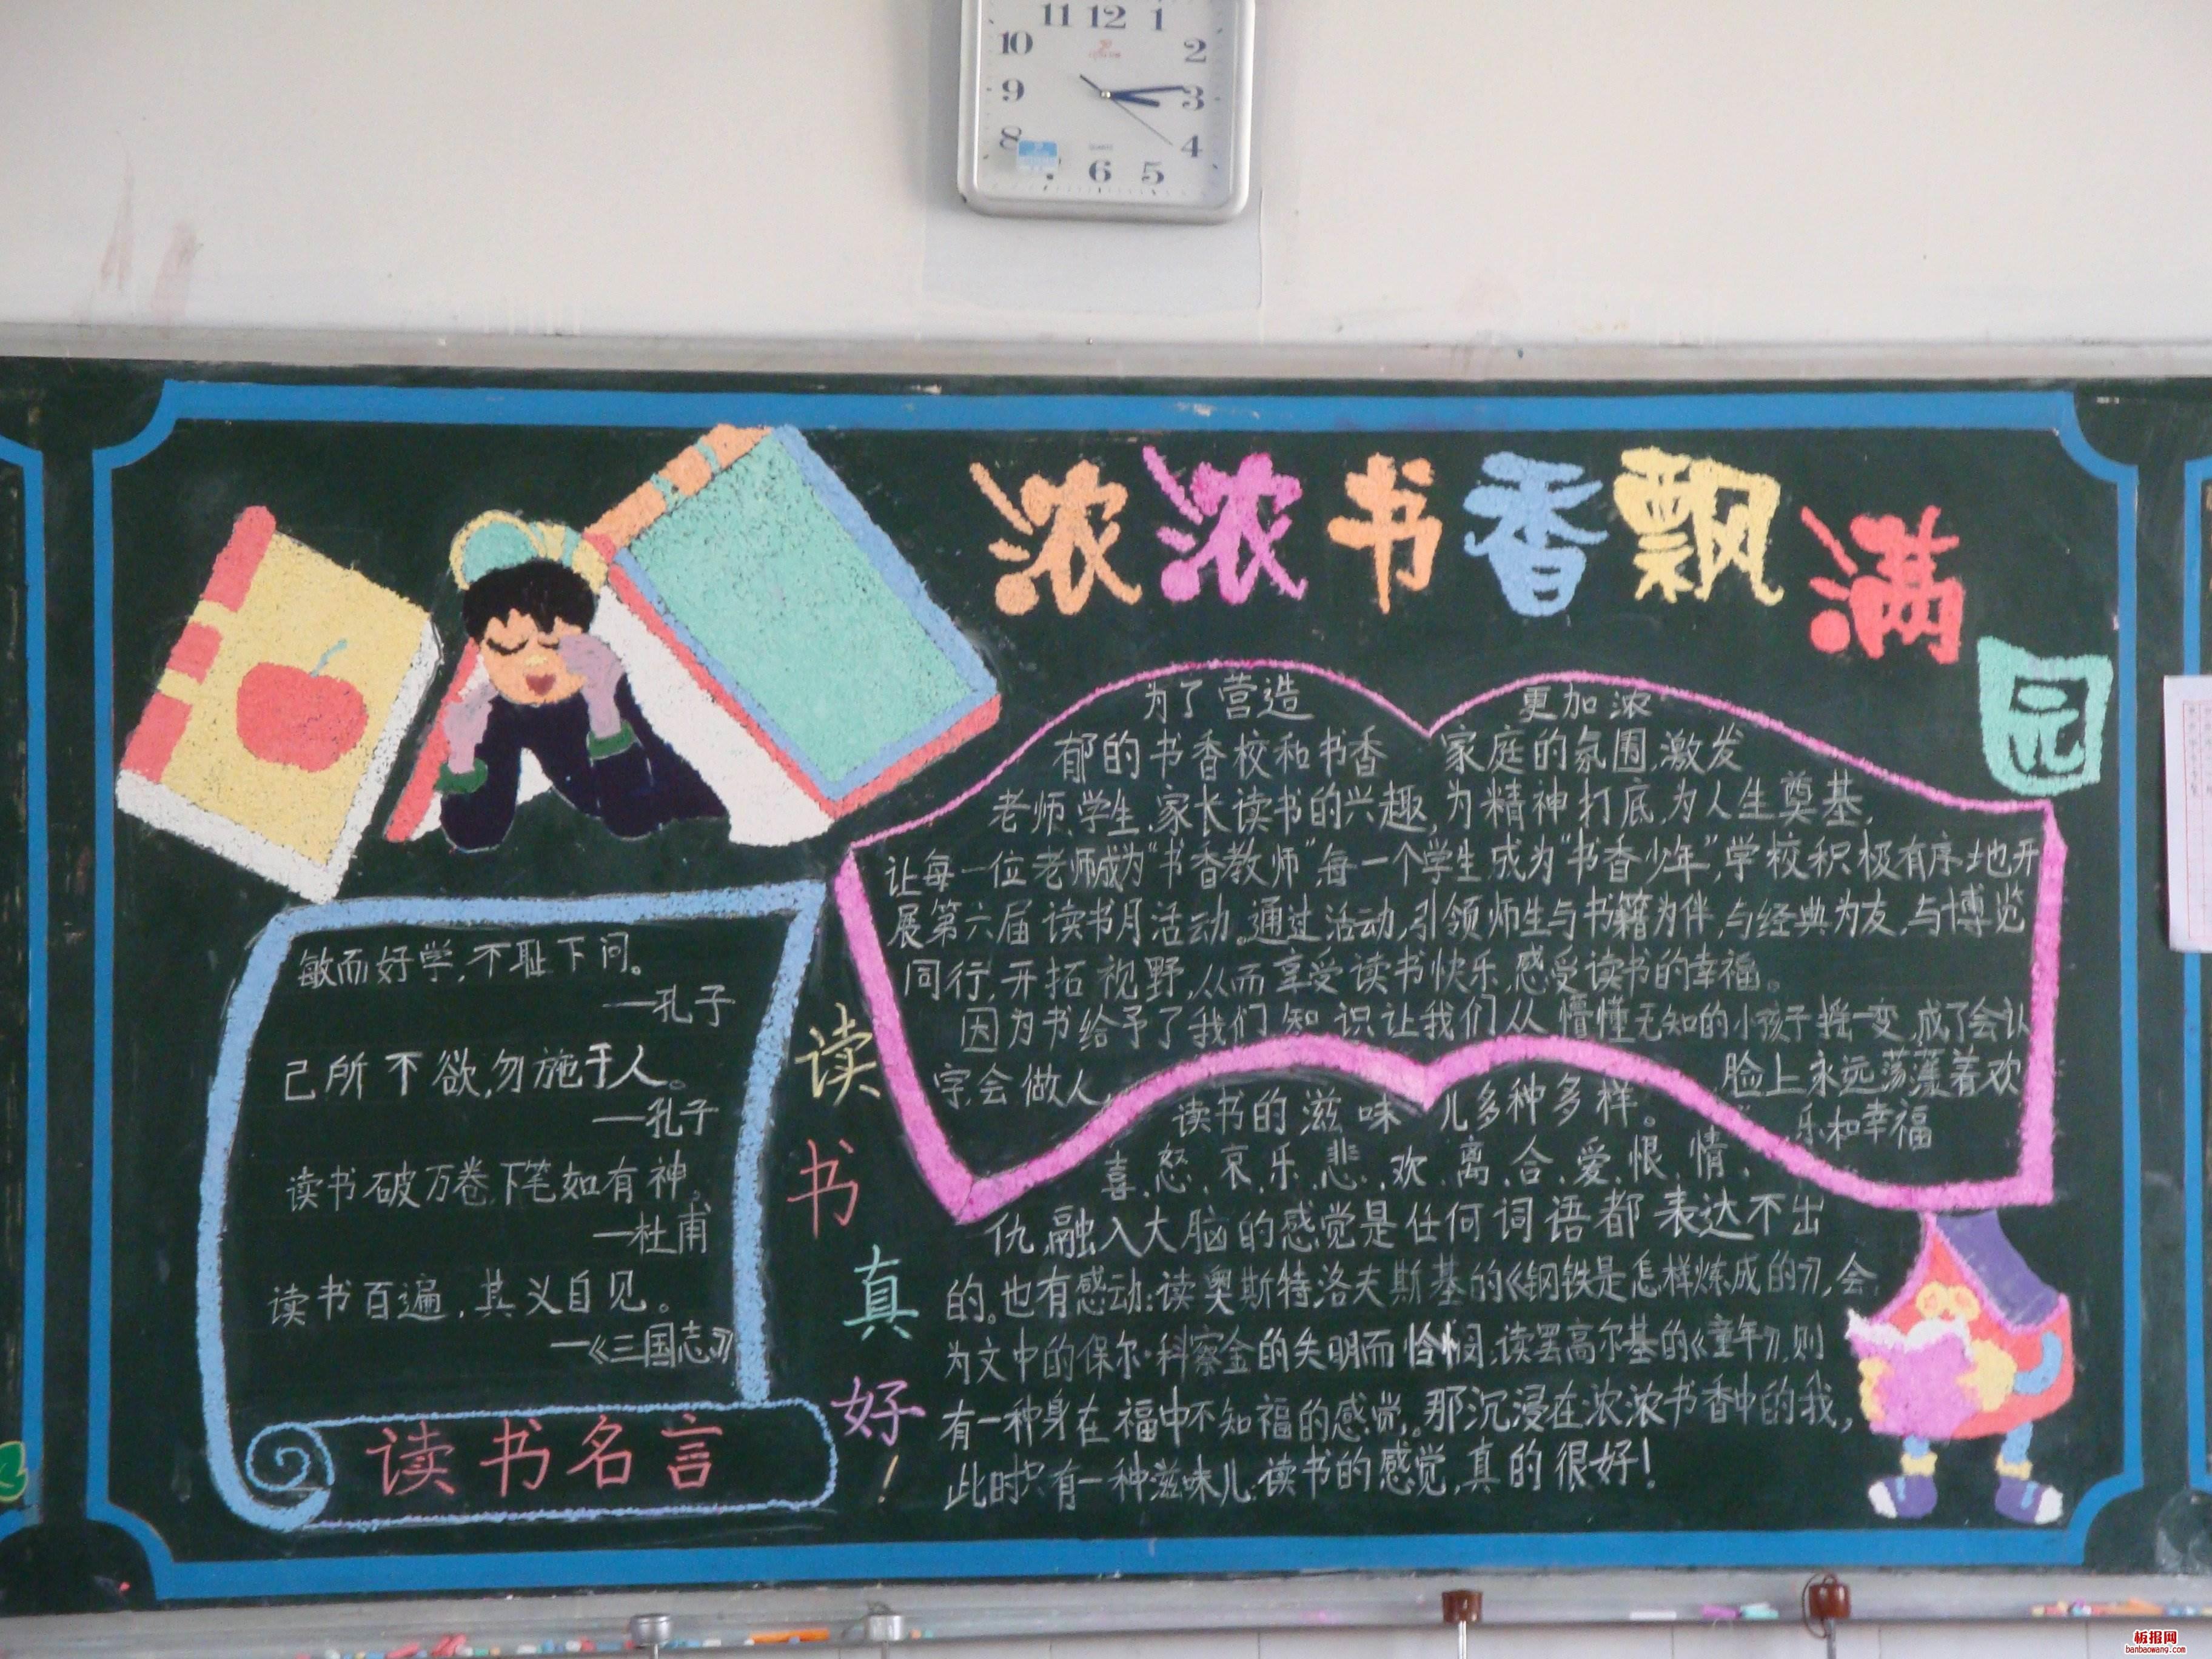 11 12 1
10 2
9 3
8 4
6 5
浓浓书香飘满园
敏而好学,不耻下问。
—孔子
己所不欲,勿施于人。
—孔子
读书破万卷,下笔如有神。
—杜甫
读书百遍,其义自见。
—《三国志》
读书名言
读书真好!
为了营造 更加浓
郁的书香校和书香 家庭的氛围,激发
老师、学生、家长读书的兴趣,为精神打底,为人生奠基,
让每一位老师成为“书香教师”,每一个学生成为“书香少年”,学校积极有序地开
展第六届读书月活动。通过活动,引领师生与书籍为伴,与经典为友,与博览
同行,开拓视野,从而享受读书快乐,感受读书的幸福。
因为书给予了我们知识让我们从懵懂无知的小孩子摇一变,成了会认
字,会做人, 脸上永远荡漾着欢
乐和幸福
读书的滋味儿多种多样。
喜、怒、哀、乐、悲、欢、离、合、爱、恨、情、
仇,融入大脑的感觉是任何词语都表达不出
的。也有感动:读奥斯特洛夫斯基的《钢铁是怎样炼成的》,会
为文中的保尔·科察金的失明而 ;读罢高尔基的《童年》,则
有一种身在福中不知福的感觉。那沉浸在浓浓书香中的我,
此时只有一种滋味儿:读书的感觉,真的很好!
板报网
banbaowang.com